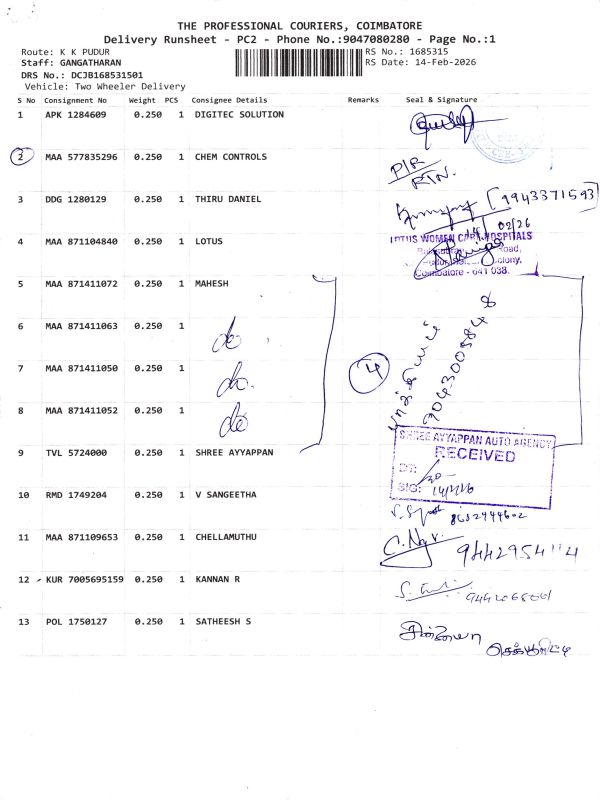 THE PROFESSIONAL COURIERS, COIMBATORE
Delivery Runsheet - PC2 - Phone No.:9047080280 - Page No.:1
Route: K K PUDUR RS No.: 1685315
Staff: GANGATHARAN RS Date: 14-Feb-2026
DRS No.: DCJB168531501
Vehicle: Two Wheeler Delivery
S No Consignment No Weight PCS Consignee Details Remarks Seal & Signature
1 APK 1284609 0.250 1 DIGITEC SOLUTION
2 MAA 577835296 0.250 1 CHEM CONTROLS P/R
RTN.
3 DDG 1280129 0.250 1 THIRU DANIEL [9943371593]
14/02/26
4 MAA 871104840 0.250 1 LOTUS LOTUS WOMEN CARE HOSPITALS
Road,
Colony,
Coimbatore - 641 038.
5 MAA 871411072 0.250 1 MAHESH
6 MAA 871411063 0.250 1 do
7 MAA 871411050 0.250 1 do 4
8 MAA 871411052 0.250 1 do
9043005848
9 TVL 5724000 0.250 1 SHREE AYYAPPAN SHREE AYYAPPAN AUTO AGENCY
RECEIVED
DT:
SIG: 14/2/26
10 RMD 1749204 0.250 1 V SANGEETHA
8682944602
11 MAA 871109653 0.250 1 CHELLAMUTHU 9442954114
12 KUR 7005695159 0.250 1 KANNAN R
13 POL 1750127 0.250 1 SATHEESH S